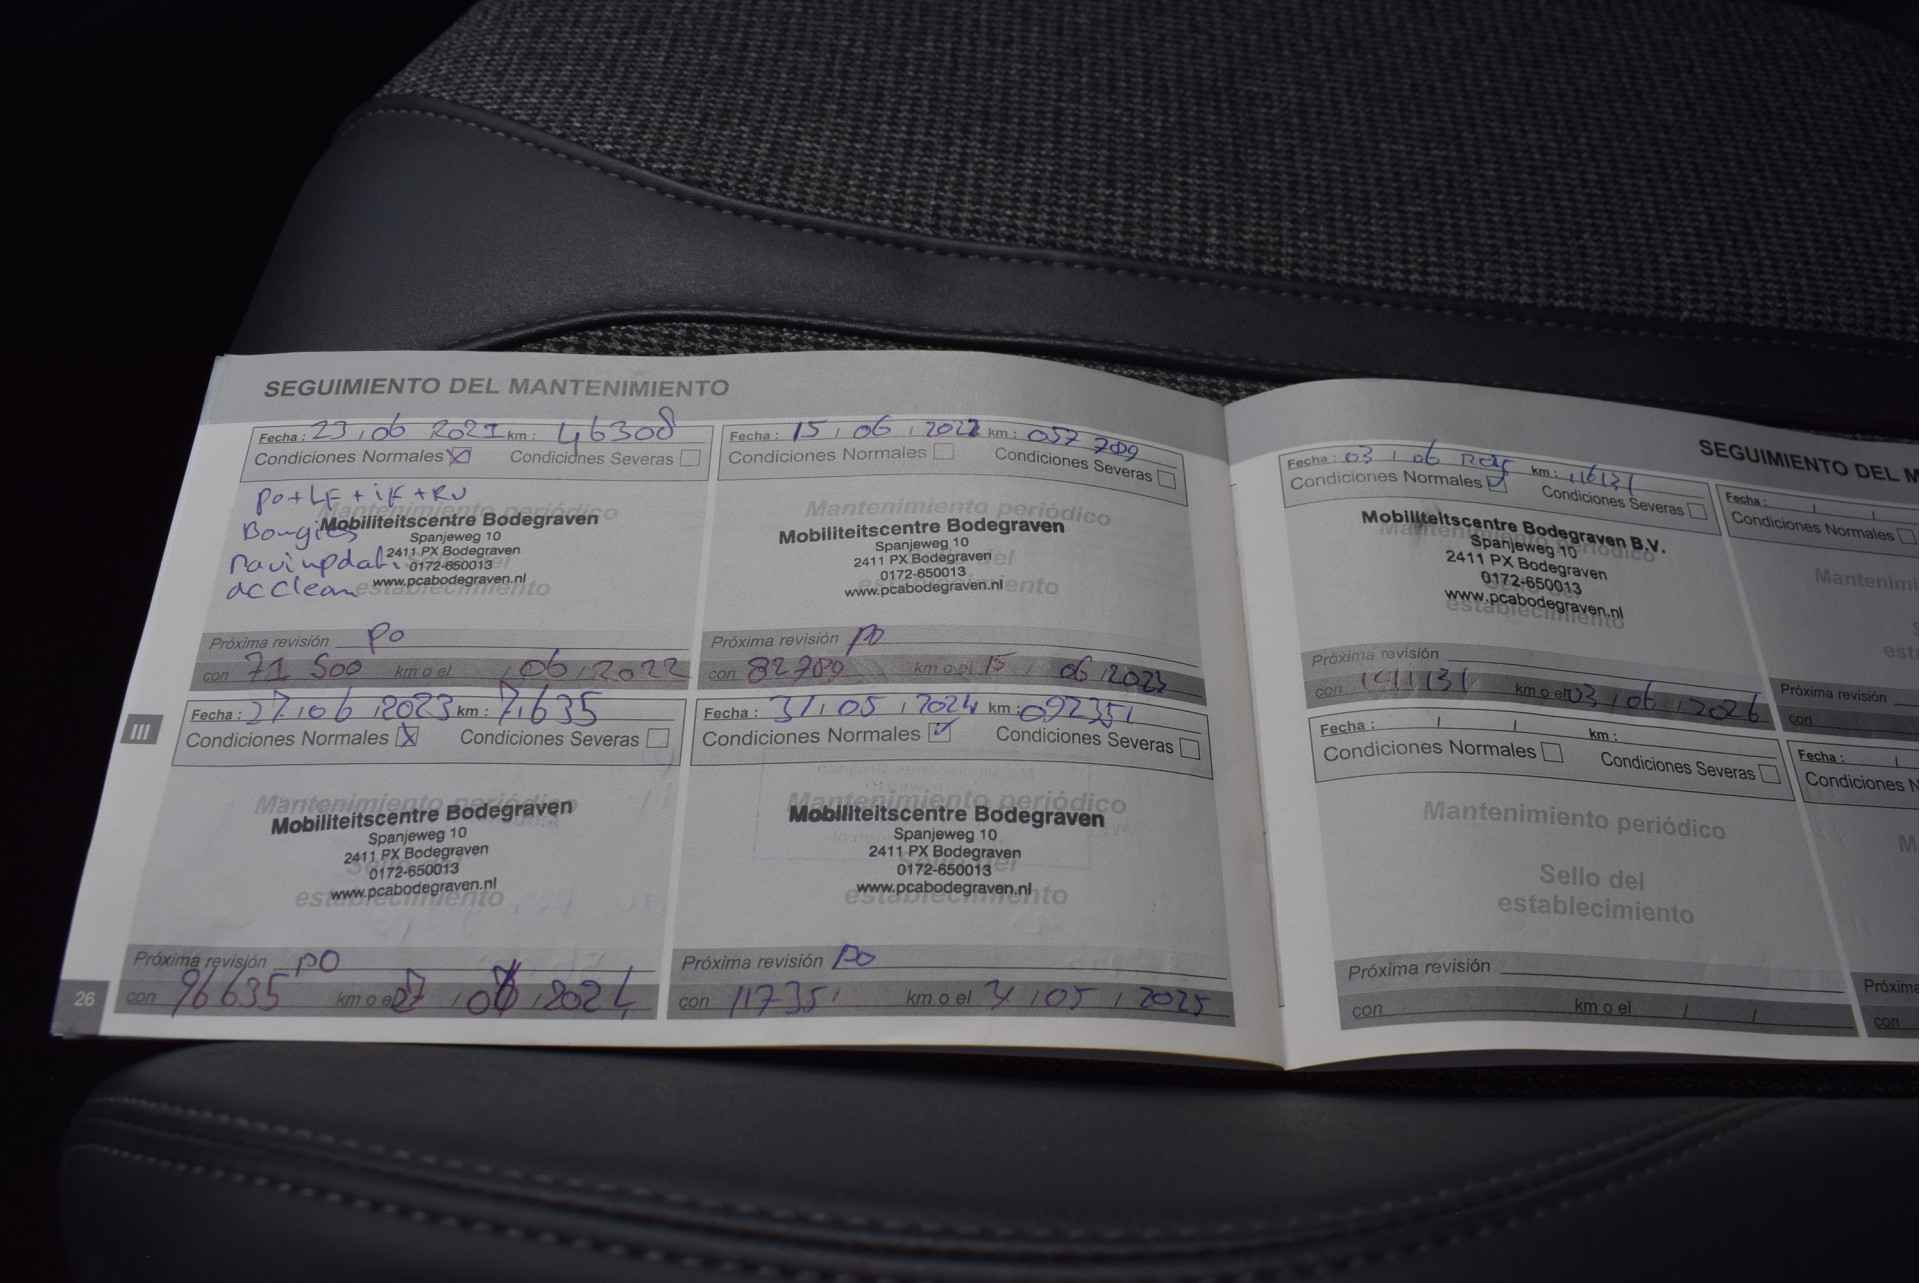 SEGUIMIENTO DEL MANTENIMIENTO
Fecha : 23 / 06 2021 km : 46308
Condiciones Normales Condiciones Severas
po + LF + iF + RV
Mantenimiento periódico
Bougies
Mobiliteitscentre Bodegraven
Spanjeweg 10
navi updat
2411 PX Bodegraven
0172-650013
ac clean
www.pcabodegraven.nl
establecimiento
Próxima revisión po
con 71 500 km o el / 06 / 2022
Fecha : 15 / 06 / 2022 km : 057 789
Condiciones Normales Condiciones Severas
Mantenimiento periódico
Mobiliteitscentre Bodegraven
Spanjeweg 10
2411 PX Bodegraven
0172-650013
www.pcabodegraven.nl
Próxima revisión po
con 82789 km o el 15 / 06 / 2023
III
Fecha : 27 / 06 / 2023 km : 71635
Condiciones Normales Condiciones Severas
Mantenimiento periódico
Mobiliteitscentre Bodegraven
Spanjeweg 10
2411 PX Bodegraven
0172-650013
www.pcabodegraven.nl
establecimiento
Próxima revisión po
con 96635 km o el 27 / 06 / 2024
Fecha : 31 / 05 / 2024 km : 092351
Condiciones Normales Condiciones Severas
Mantenimiento periódico
Mobiliteitscentre Bodegraven
Spanjeweg 10
2411 PX Bodegraven
0172-650013
www.pcabodegraven.nl
establecimiento
Próxima revisión po
con 117351 km o el 31 / 05 / 2025
26
SEGUIMIENTO DEL M
Fecha : 03 / 06 / 2025 km : 116131
Condiciones Normales Condiciones Severas
Mobiliteitscentre Bodegraven B.V.
Mantenimiento periódico
Spanjeweg 10
2411 PX Bodegraven
0172-650013
www.pcabodegraven.nl
establecimiento
Próxima revisión
con 141131 km o el 03 / 06 / 2026
Fecha : / /
Condiciones Normales
Mantenimi
est
Próxima revisión
con
Fecha : / / km :
Condiciones Normales Condiciones Severas
Mantenimiento periódico
Sello del
establecimiento
Próxima revisión
con km o el / /
Fecha : /
Condiciones N
M
Próxima
con